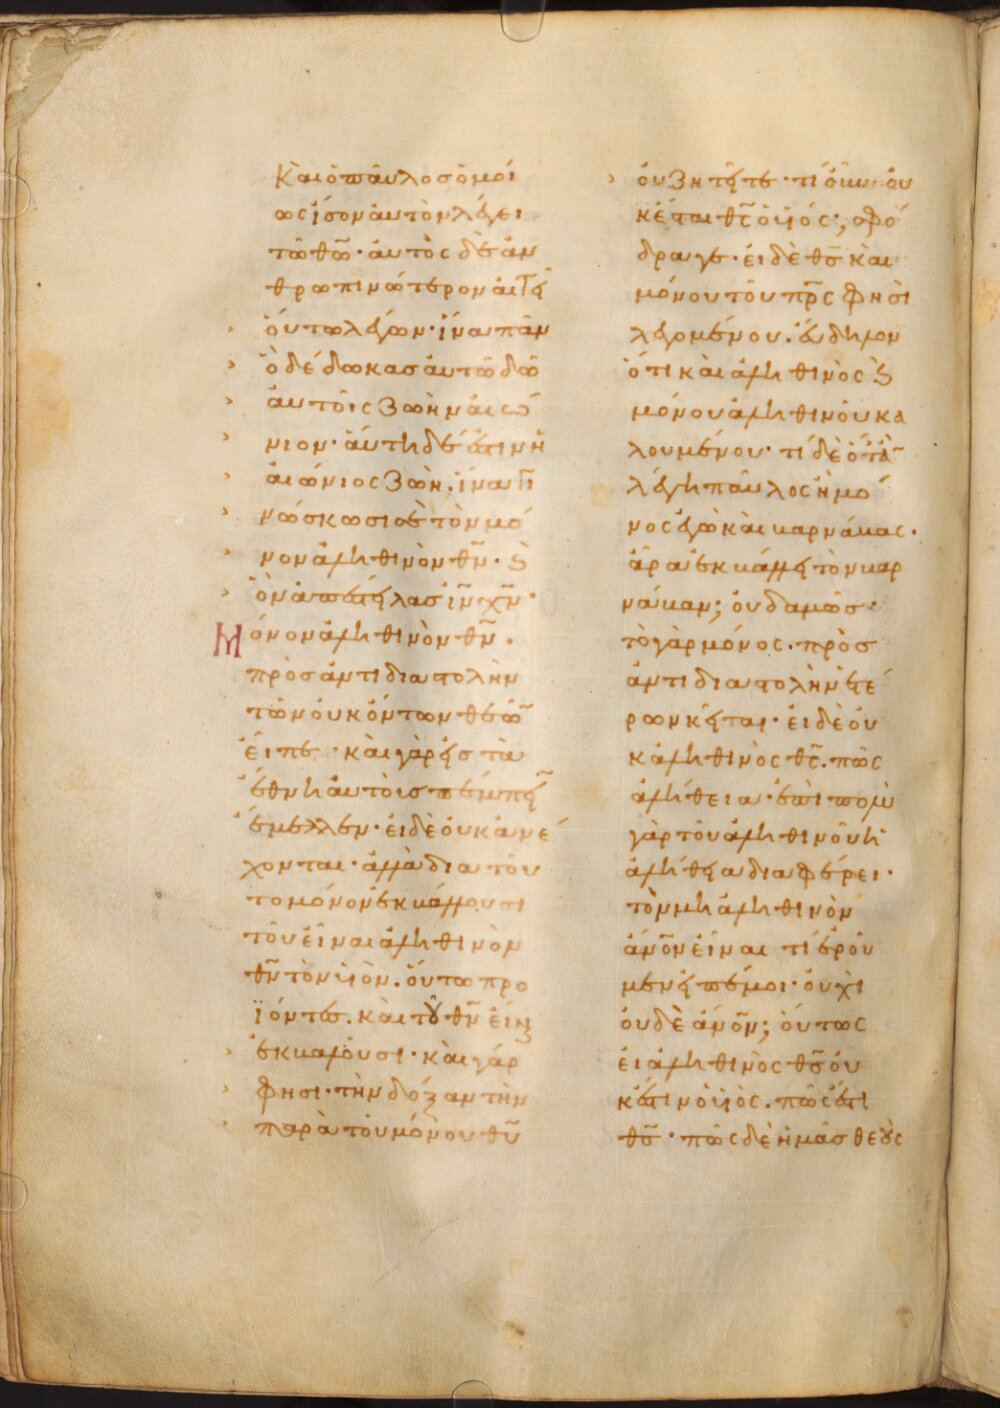 Καὶ ὁ παῦλος ὁμοί
ως ἴσον ἁυτὸν λέγει
τῶ θῶ· ἁυτὸς δὲ ἀν
θρωπινώτερον ἀιτεῖ
ὁύτω λέγων· ἵνα πᾶν
ὃ δέδωκας ἀυτῶ δῶ
ἀυτοῖς ζωὴν ἀιώ
νιον· ἅυτη δέ ἐστιν ἡ
ἀιώνιος ζωὴ. ἵνα γι
νώσκωσι σὲ τὸν μό
νον ἀληθινὸν θν· καὶ
ὃν ἀπέστειλας ιν χν·
Μόνον ἀληθινὸν θν.
πρὸς ἀντιδιαστολὴν
τῶν ὀυκ ὄντων θεῶν
ἔιπε· καὶ γὰρ ἐις τὰ
ἔθνη ἀυτοὺς πέμπειν
ἔμελλεν· ἐι δὲ ὀυκ ἀνέ
χονται· ἀλλὰ δια τοῦ
το μόνον ἐκβάλλουσι
τοῦ εἶναι ἀληθινὸν
θν τὸν ὑιὸν. ὅυτω προ
ϊόντες. καὶ τοῦ θν εἶναι
ἐκβαλοῦσι· καὶ γάρ
φησι· τὴν δόξαν τὴν
παρὰ τοῦ μόνου θυ
ὀυ ζητεῖτε· τί ὀῦν ὀυ
κέται θς ὁ ὑιός; σφό
δρα γε· ἐι δὲ θς καὶ
μόνου τοῦ πρς φησὶ
λεγομένου. ἔυδηλον
ὅτι καὶ ἀληθινὸς καὶ
μόνου ἀληθινοῦ κα
λουμένου· τί δὲ ὅταν
λέγη παῦλος ἢ μό
νος ἐγὼ καὶ βαρνάβας.
ἆρα ἐκβάλλει τὸν βαρ
νάβαν; ὀυδαμῶς·
τὸ γὰρ μόνος. πρὸς
ἀντιδιαστολὴν ἑτέ
ρων κεῖται· ἐι δὲ ὀυ
κ ἀληθινὸς θς. πῶς
ἀλήθεια· ἐπὶ πολὺ
γὰρ τοῦ ἀληθινοῦ ἡ
ἀλήθεια διαφέρει·
τὸν μὴ ἀληθινὸν
ἀνον εἶναι τί ἐροῦ
μεν ἐιπέ μοι· ὀυχὶ
ὀυδὲ ἀνον; ὁύτως
ἐι ἀληθινὸς θς ὀυ
κ ἔστιν ὁ ὑιὸς. πῶς ἐστι
θς· πῶς δὲ ἡμᾶς θεοὺς